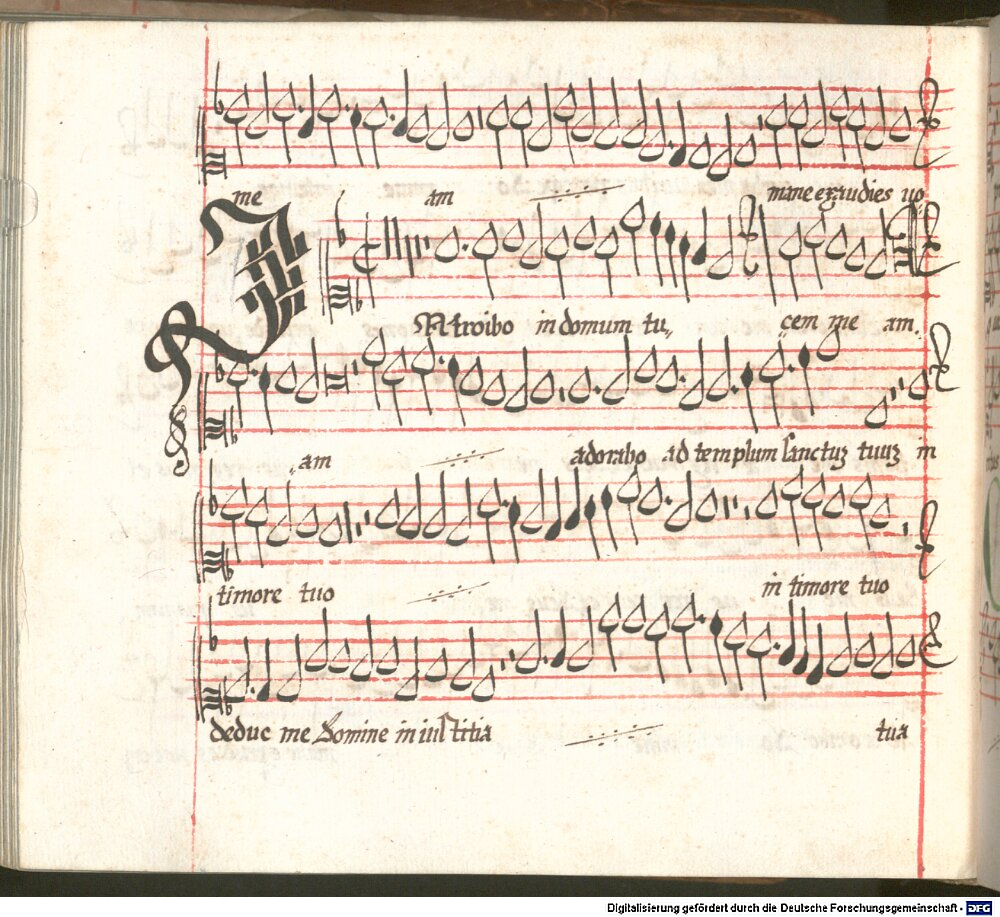 me am mane exaudies uo
INtroibo in domum tu,, cem me am.
am adorabo ad templum sanctuȝ tuuȝ in
timore tuo in timore tuo
deduc me Domine in iustitia tua
Digitalisierung gefördert durch die Deutsche Forschungsgemeinschaft - DFG